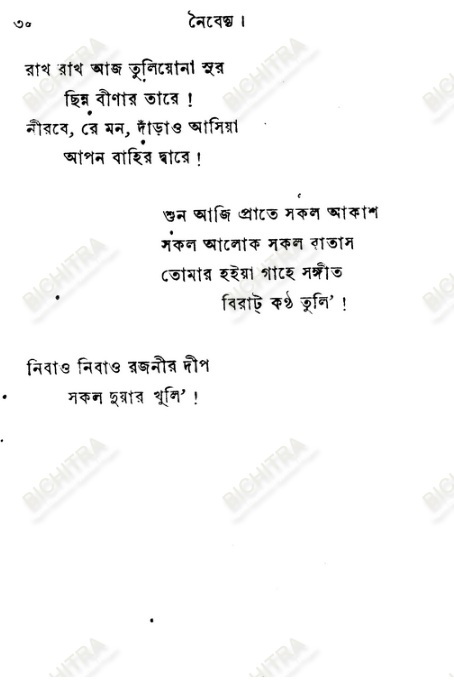 ৩০ নৈবেদ্য ।
রাখ রাখ আজ তুলিয়োনা সুর
ছিন্ন বীণার তারে !
নীরবে, রে মন, দাঁড়াও আসিয়া
আপন বাহির দ্বারে !
শুন আজি প্রাতে সকল আকাশ
সকল আলোক সকল বাতাস
তোমার হইয়া গাহে সঙ্গীত
বিরাট্ কণ্ঠ তুলি’ !
নিবাও নিবাও রজনীর দীপ
সকল দুয়ার খুলি’ !
BICHITRA
BICHITRA
BICHITRA
BICHITRA
BICHITRA
BICHITRA
BICHITRA
BICHITRA
BICHITRA